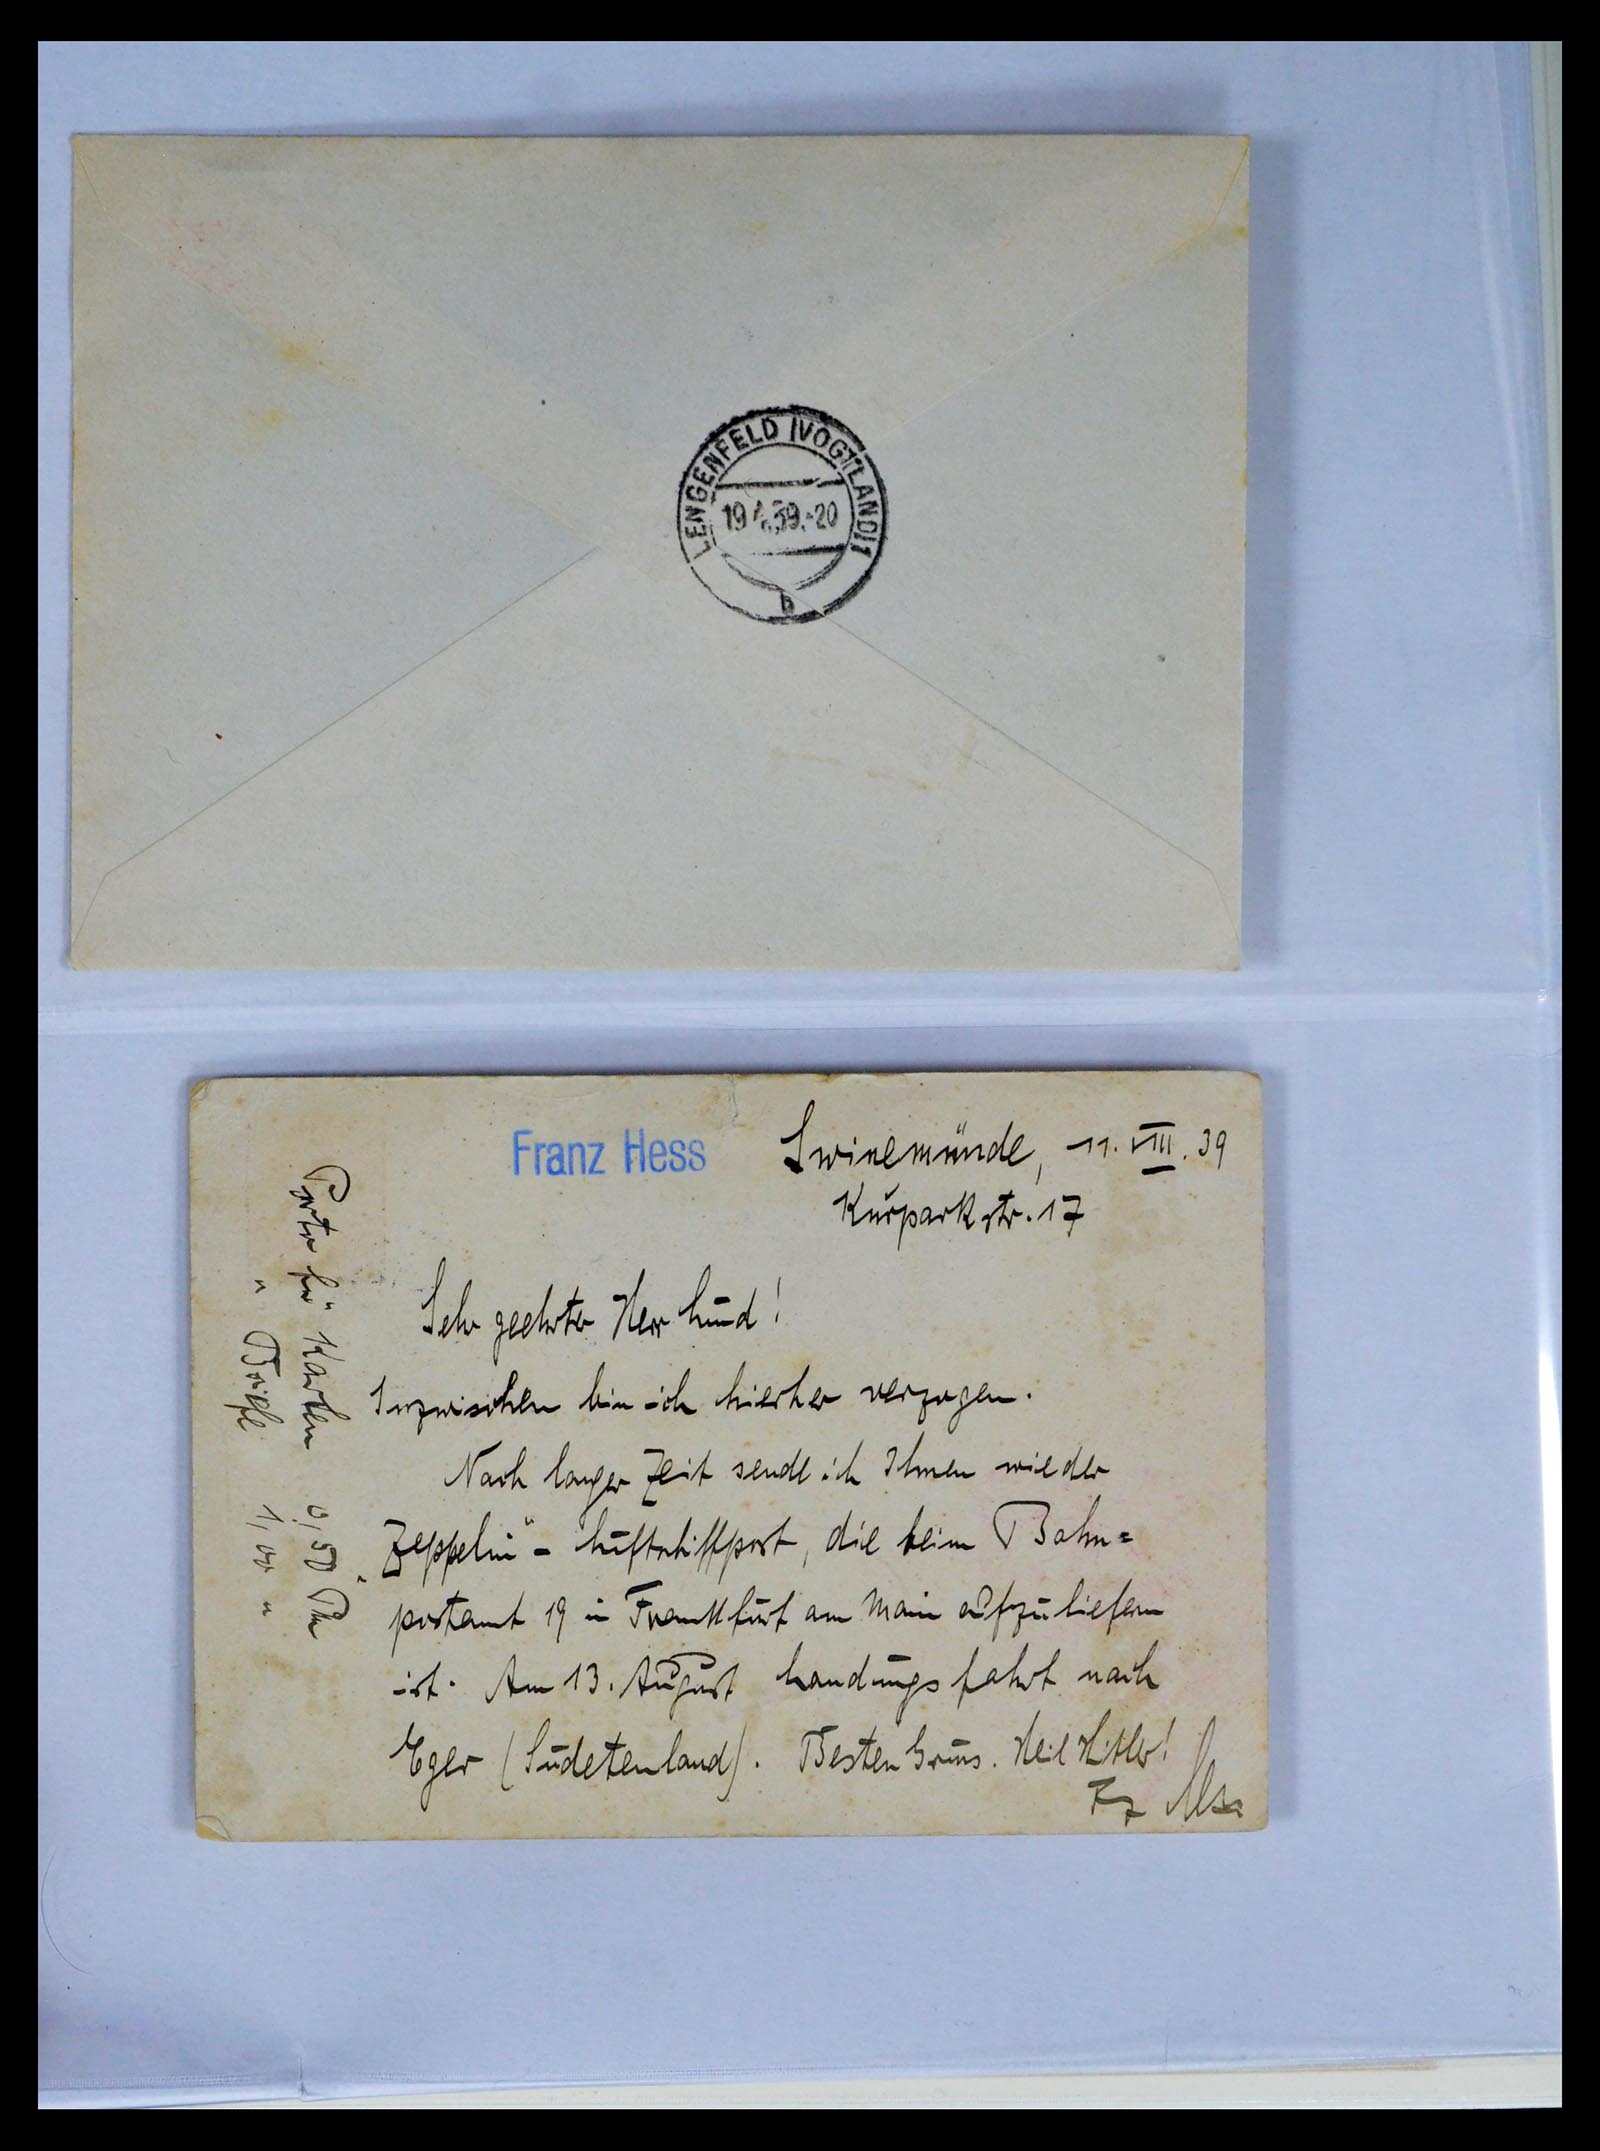 LENGENFELD (VOGTLAND) 1
19.4.39.-20
b
Franz Hess
Swinemünde, 11. VIII. 39
Kurparkstr. 17
Sehr geehrter Herr Lund!
Inzwischen bin ich hierher verzogen.
Nach langer Zeit sende ich Ihnen wieder
Zeppelin"-Luftschiffpost, die beim Bahn=
postamt 19 in Frankfurt am Main aufzuliefern
ist. Am 13. August Landungsfahrt nach
Eger (Sudetenland). Besten Gruss. Heil Hitler!
Fz Hess
Porto für Karten 0,50 Rm
" " Briefe 1,00 "